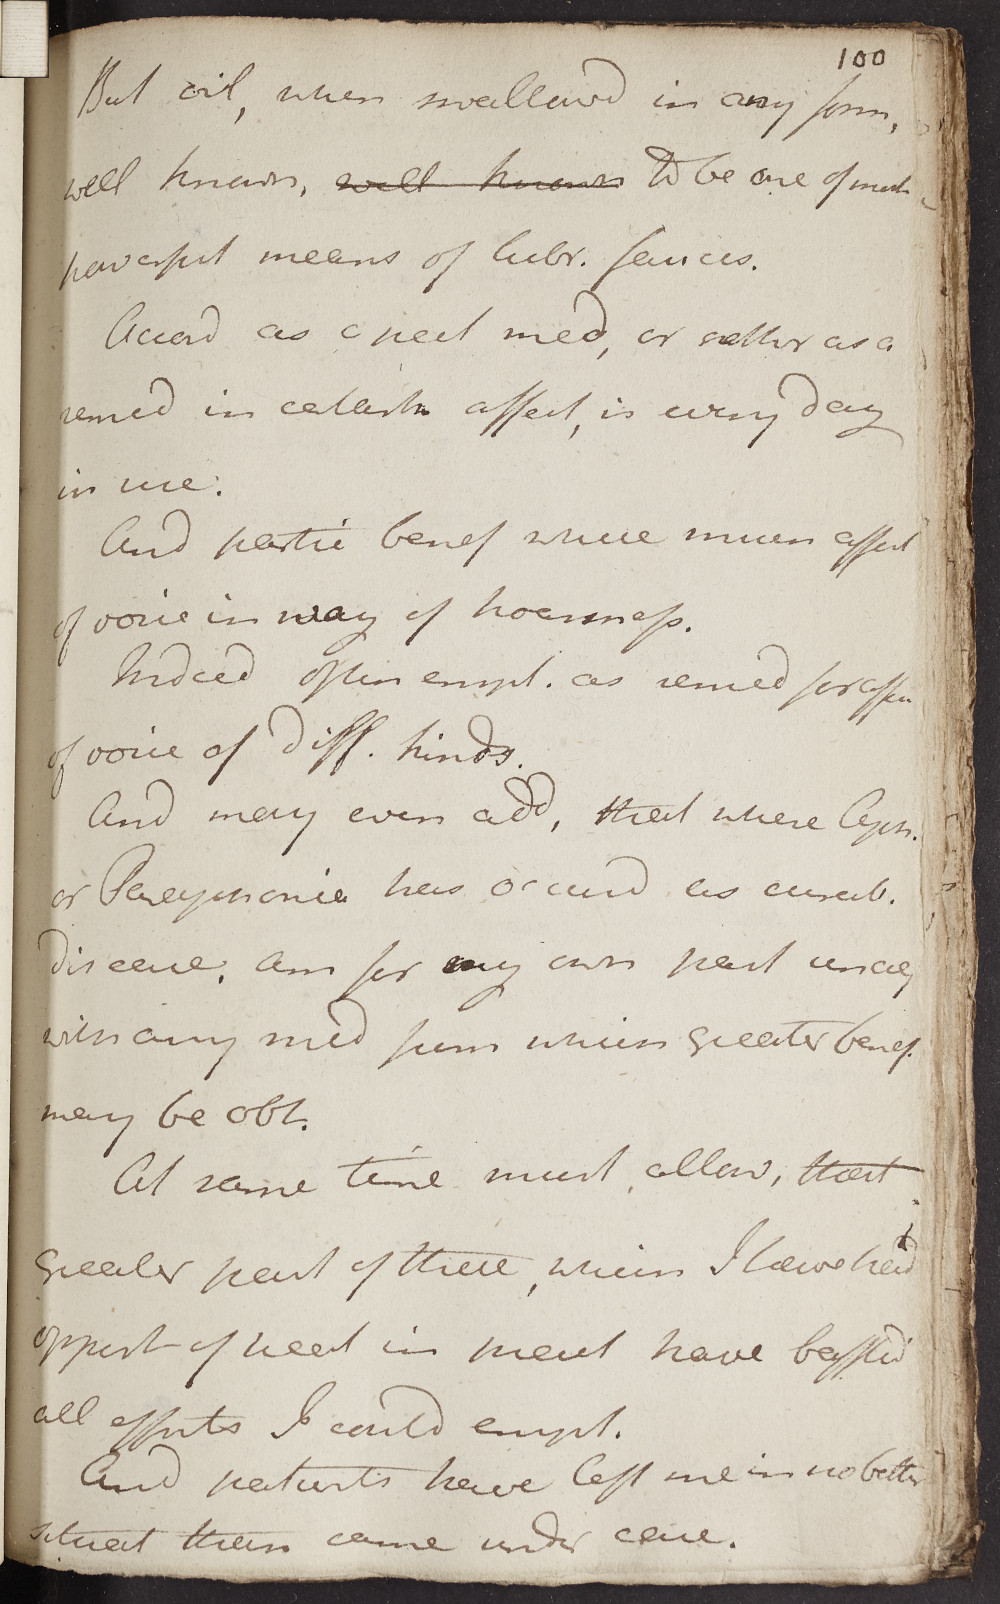 100
But oil, when swallowd in any form,
well known, well known to be one of most
powerful means of lubr. fauces.
Accord as a pect med, or rather as a
remed in catarrh affect, is every day
in use.
And partic benef where much affect
of voice in way of hoarsness.
Indeed often empl. as remed for affec
of voice of diff. kinds.
And may even add, that where Aph.
or Paraphonia has occurd as curab.
disease, am for my own part unacq
with any med from which greater benef.
may be obt.
At same time must allow, that
greater part of these, which I have had
opport of treat in pract have baffled
all efforts I could empl.
And patients have left me in no better
situat than came under care.